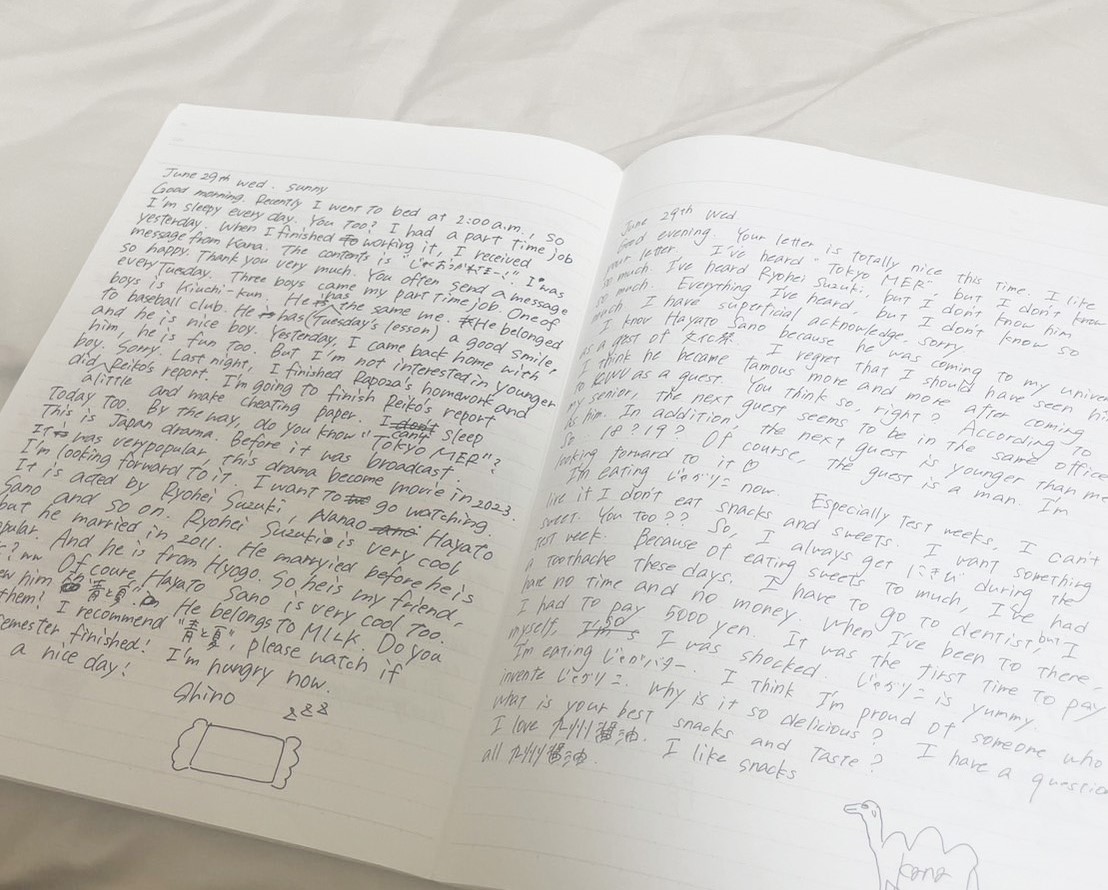 June 29th wed. sunny
Good morning. Recently I went to bed at 2:00 a.m., so
I'm sleepy every day. You too? I had a part time job
yesterday. When I finished working it, I received
message from Kana. The contents is "じゃがりこおつかれさまー!" I was
so happy. Thank you very much. You often send a message
every Tuesday. Three boys came my part time job. One of
boys is Kiuchi-kun. He has the same me. He belonged
to baseball club. He has (Tuesday's lesson) a good smile,
and he is nice boy. Yesterday, I came back home with
him, he is fun too. But I'm not interested in younger
boy. Sorry. Last night, I finished Rapoza's homework and
did a little Reiko's report. I'm going to finish Reiko's report
and make cheating paper. I can't sleep
today too. By the way, do you know "TOKYO MER"?
This is Japan drama. Before it was broadcast.
It was very popular, this drama become movie in 2023.
I'm looking forward to it. I want to go watching.
It is acted by Ryohei Suzuki, Nanao Hayato
Sano and so on. Ryohei Suzuki is very cool
but he married in 2011. He marryied before he's
pular. And he is from Hyogo. So he's my friend,
Of coure, Hayato Sano is very cool too.
ew him "青と夏". He belongs to M!LK. Do you
them? I recommend "青と夏", please watch if
semester finished! I'm hungry now.
a nice day!
Shino
June 29th Wed
Good evening. Your letter is totally nice this time. I like
your letter. I've heard "Tokyo MER" but I don't know
so much. I've heard Ryohei Suzuki, but I don't know him
so much. Everything I've heard, but I don't know so
much. I have superficial acknowledge. sorry
I know Hayato Sano because he was coming to my univer
as a gest of 文化祭. I regret that I should have seen him
I think he became famous more and more after coming
to KWU as a guest. You think so, right? According to
my senior, the next guest seems to be in the same office
as him. In addition, the next guest is younger than me
So 18? 19? Of course, the guest is a man. I'm
looking forward to it
I'm eating じゃがりこ now. Especially Test weeks, I can't
live if I don't eat snacks and sweets. I want something
sweet. You too?? So, I always get "にきび" during the
test week. Because of eating sweets to much, I've had
a toothache these days. I have to go to dentist, but I
have no time and no money. When I've been to there,
I had to pay 5000 yen. It was the first time to pay
myself, so I was shocked. じゃがりこ is yummy.
I'm eating じゃがバター. I think I'm proud of someone who
invente じゃがりこ. Why is it so delicious? I have a question
what is your best snacks and taste?
I love 九州醤油. I like snacks
all 九州醤油.
Kana